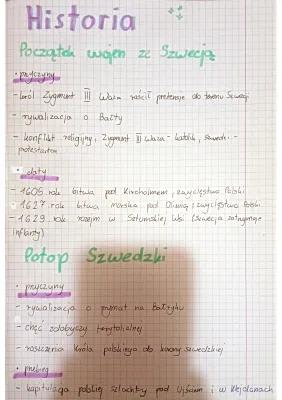 Historia
Początek wojen ze Szwecją
• przyczyny
- król Zygmunt III Waza rościł pretensje do tronu Szwecji
- rywalizacja o Bałty
- konflikt religijny, Zygmunt III Waza - katolik, szwedzi -
protestantom
• daty
- 1605 rok bitwa pod Kircholmem, zwycięstwo Polski
- 1627 rok bitwa morska pod Oliwą, zwycięstwo Polski
- 1629 rok rozejm w Sztumskiej Wsi (Szwecja zatrzymuje
Inflanty)
Potop Szwedzki
• przyczyny
- rywalizacja o prymat na Bałtyku
- chęć zdobyczy terytorialnej
- roszczenia króla polskiego do korony szwedzkiej
• przebieg
- kapitulacja polskiej szlachty pod Ujściem i w Kiejdanach